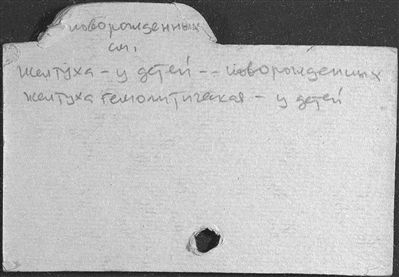 новорожденных
см.
Желтуха - у детей -- новорожденных
Желтуха гемолитическая - у детей